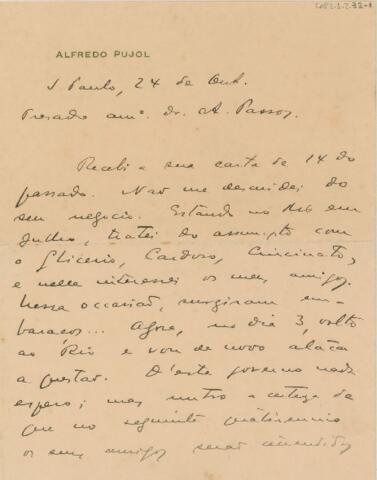 ALFREDO PUJOL
S. Paulo, 24 de Out.
Prezado amº. dr. A. Passos.
Recebi a sua carta de 14 do
passado. Não me descuidei do
seu negocio. Estando no Rio em
Julho, tratei do assumpto com
o Glicerio, Cardoso, Cincinato,
e nelle interessei os meus amigos.
Nessa occasião, surgiram em-
baraços... Agora, no dia 3, volto
ao Rio e vou de novo atacar
a questão. D'este governo nada
espero; mas nutro a certeza de
que no seguinte quatriennio
os seus amigos serão attendidos